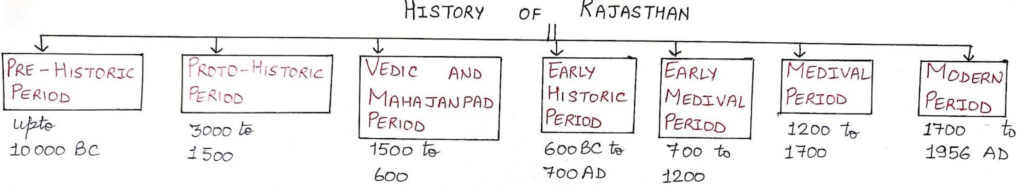 HISTORY OF RAJASTHAN
PRE-HISTORIC
PERIOD
upto
10000 BC
PROTO-HISTORIC
PERIOD
3000 to
1500
VEDIC AND
MAHAJANPAD
PERIOD
1500 to
600
EARLY
HISTORIC
PERIOD
600 BC to
700 AD
EARLY
MEDIVAL
PERIOD
700 to
1200
MEDIVAL
PERIOD
1200 to
1700
MODERN
PERIOD
1700 to
1956 AD